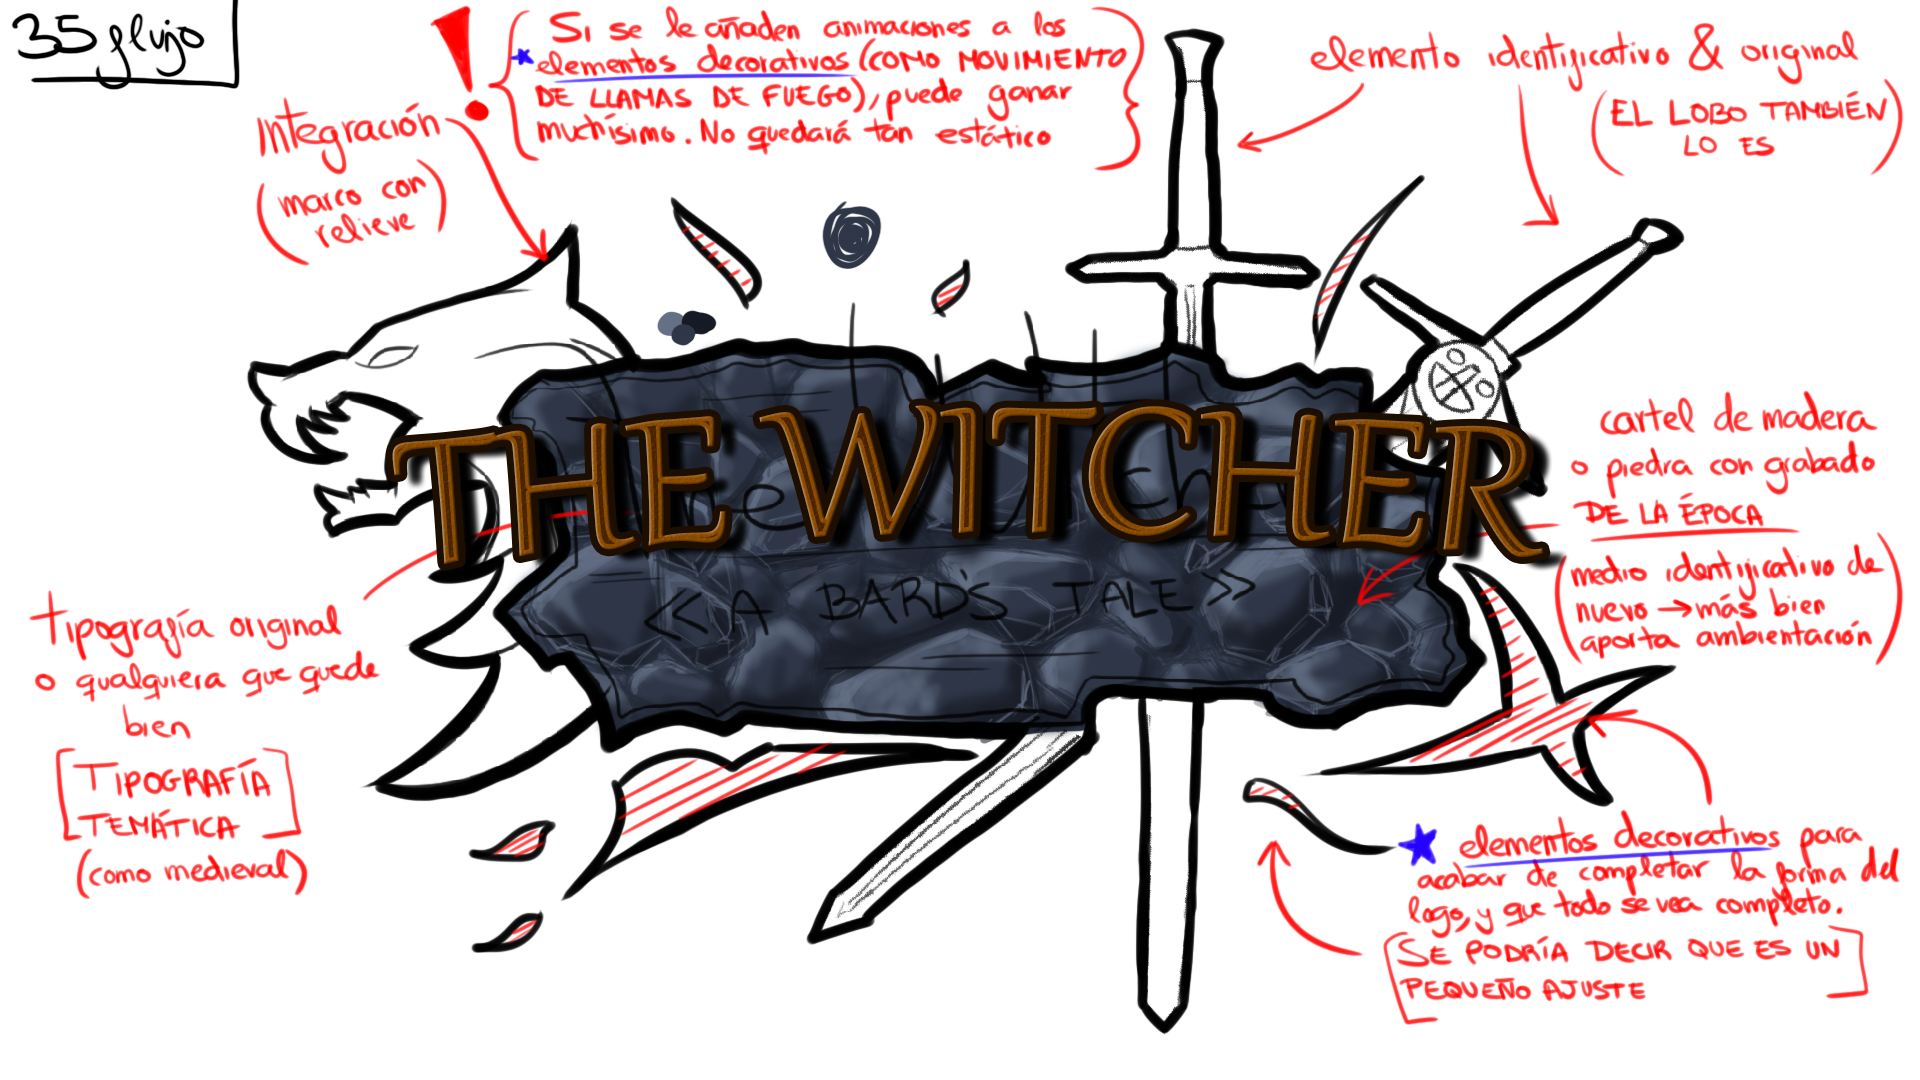 35 flujo
Si se le añaden animaciones a los
elementos decorativos (COMO MOVIMIENTO
DE LLAMAS DE FUEGO), puede ganar
muchísimo. No quedará tan estático
elemento identificativo & original
(EL LOBO TAMBIÉN
LO ES)
Integración
(marco con
relieve)
THE WITCHER
<<A BARD'S TALE>>
cartel de madera
o piedra con grabado
DE LA ÉPOCA
(medio identificativo de
nuevo → más bien
aporta ambientación)
Tipografía original
o qualquiera que quede
bien
[TIPOGRAFÍA
TEMÁTICA]
(como medieval)
elementos decorativos para
acabar de completar la forma del
logo, y que todo se vea completo.
[SE PODRÍA DECIR QUE ES UN
PEQUEÑO AJUSTE]